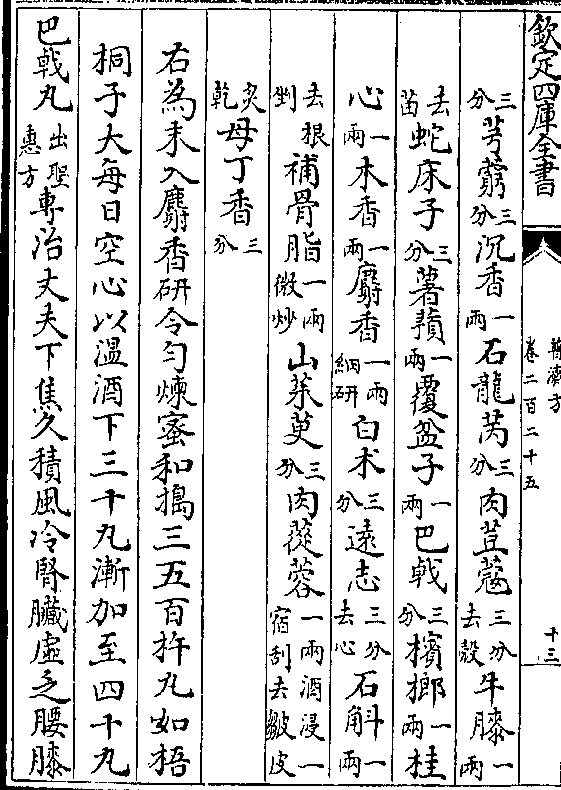 欽定四庫全書
普濟方
卷二百二十五
十三
三分芎藭三分沉香一兩石龍芮三分肉荳蔻三分去殼牛膝一兩
去苗蛇床子三分薯蕷一兩覆盆子一兩巴戟三分檳榔一兩桂
心一兩木香一兩麝香一兩細研白朮三分遠志三分去心石斛一兩
去根剉補骨脂一兩微炒山茱萸三分肉蓯蓉一兩酒浸一宿刮去皺皮
炙乾母丁香三分
右為末入麝香研令勻煉蜜和搗三五百杵丸如梧
桐子大每日空心以溫酒下三十丸漸加至四十丸
巴戟丸出聖惠方專治丈夫下焦久積風冷腎臟虛乏腰膝